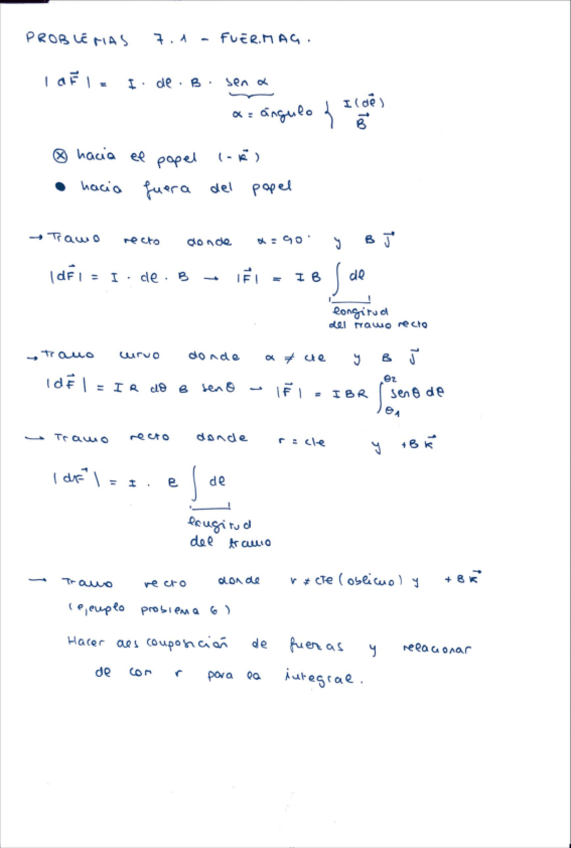 PROBLEMAS 7.1 - FUER.MAG.
|dF⃗| = I · dl · B · sen α
α = ángulo { I(dl⃗)
B⃗
⊗ hacia el papel (-k⃗)
● hacia fuera del papel
→ Tramo recto donde α = 90° y B j⃗
|dF⃗| = I · dl · B → |F⃗| = I B ∫ dl
longitud
del tramo recto
→ Tramo curvo donde α ≠ cte y B j⃗
|dF⃗| = I R dθ B senθ → |F⃗| = I B R ∫_θ1^θ2 senθ dθ
→ Tramo recto donde r = cte y +B k⃗
|dF⃗| = I · B ∫ dl
longitud
del tramo
→ Tramo recto donde r ≠ cte (oblicuo) y +B k⃗
(ejemplo problema 6)
Hacer descomposición de fuerzas y relacionar
dl con r para la integral.